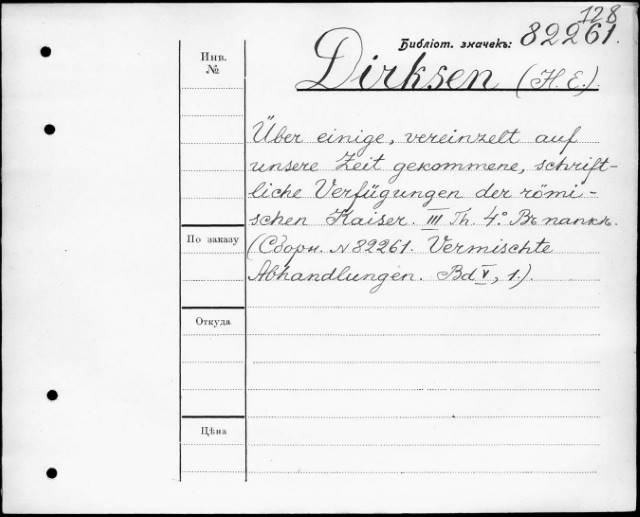 128
Библіот. значекъ: 82261.
Dirksen (H. E.).
Инв.
№
Über einige, vereinzelt auf
unsere Zeit gekommene, schrift-
liche Verfügungen der römi-
schen Kaiser. III Th. 4.° Въ папкѣ.
По заказу
(Сборн. № 82261. Vermischte
Abhandlungen. Bd V, 1.).
Откуда
Цѣна